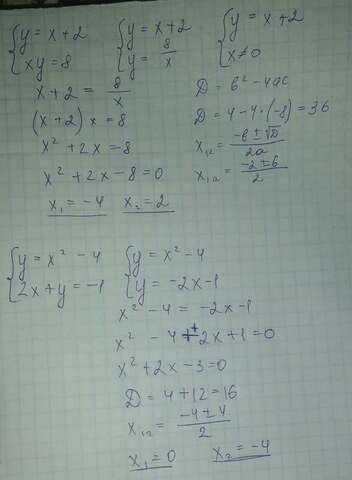 {y = x + 2
{xy = 8
{y = x + 2
{y = 8/x
{y = x + 2
{x ≠ 0
x + 2 = 8/x
(x + 2) x = 8
x² + 2x = 8
x² + 2x - 8 = 0
x₁ = -4 x₂ = 2
D = b² - 4ac
D = 4 - 4·(-8) = 36
x₁,₂ = (-b ± √D)/2a
x₁,₂ = (-2 ± 6)/2
{y = x² - 4
{2x + y = -1
{y = x² - 4
{y = -2x - 1
x² - 4 = -2x - 1
x² - 4 + 2x + 1 = 0
x² + 2x - 3 = 0
D = 4 + 12 = 16
x₁,₂ = (-4 ± 4)/2
x₁ = 0 x₂ = -4